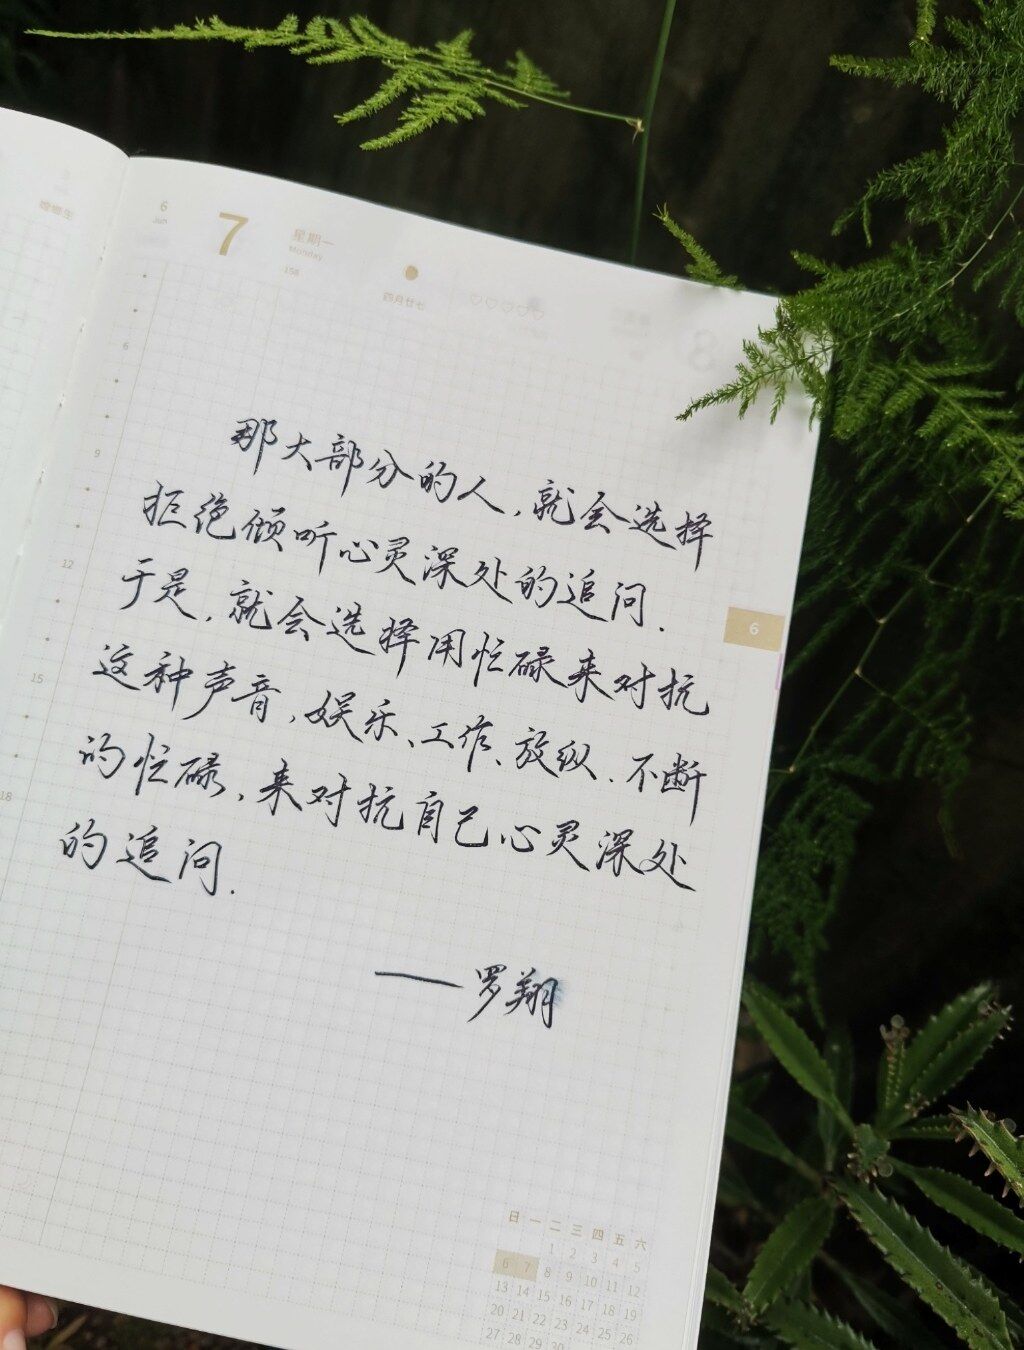 6
Jun
7
星期一
Monday
158
四月廿七
6
9
12
15
18
那大部分的人,就会选择
拒绝倾听心灵深处的追问.
于是,就会选择用忙碌来对抗
这种声音,娱乐、工作、放纵.不断
的忙碌,来对抗自己心灵深处
的追问.
——罗翔
6
日 一 二 三 四 五 六
1 2 3 4 5
6 7 8 9 10 11 12
13 14 15 16 17 18 19
20 21 22 23 24 25 26
27 28 29 30